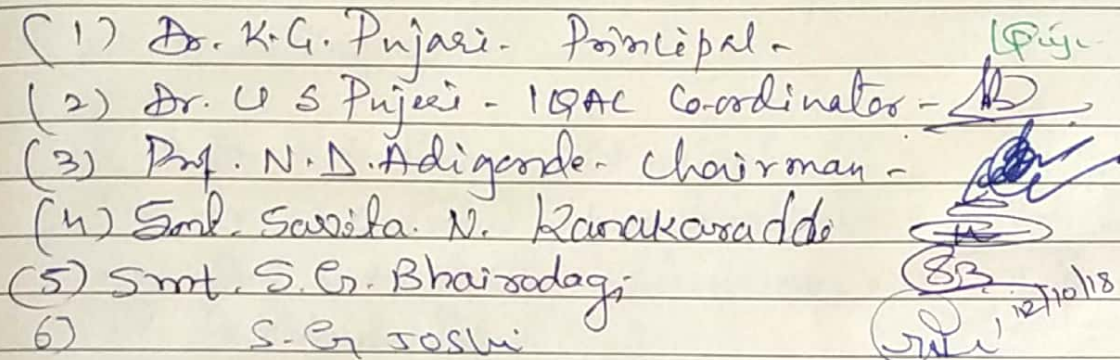 (1) Dr. K.G. Pujari - Principal -
(2) Dr. U S Pujeri - IQAC Co-ordinator -
(3) Prof. N.D. Adigonde - Chairman -
(4) Smt. Savita. N. Kanakaraddi
(5) Smt. S. G. Bhairodagi SB
6) S. G Joshi 12/10/18